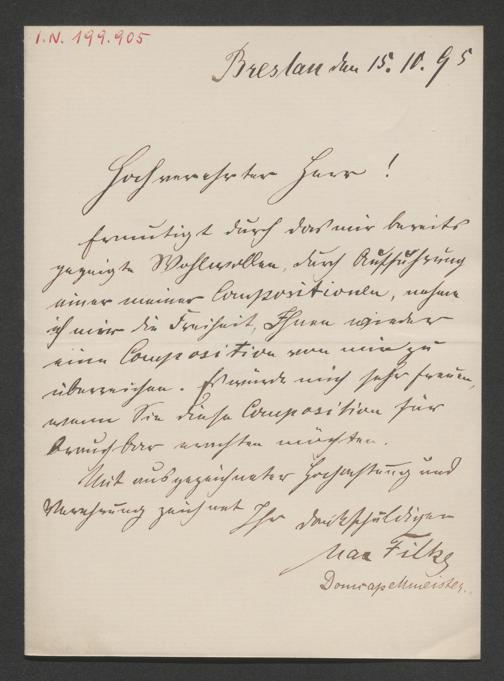 I.N. 199.905
Breslau den 15. 10. 95
Hochverehrter Herr!
Ermutigt durch das mir bereits
gezeigte Wohlwollen, durch Aufführung
einer meiner Compositionen, nehme
ich mir die Freiheit, Ihnen wieder
eine Composition von mir zu
überreichen. Es würde mich sehr freuen,
wenn Sie diese Composition für
brauchbar erachten möchten.
Mit ausgezeichneter Hochachtung und
Verehrung zeichnet Ihr dankschuldiger
Max Filke
Domcapellmeister.